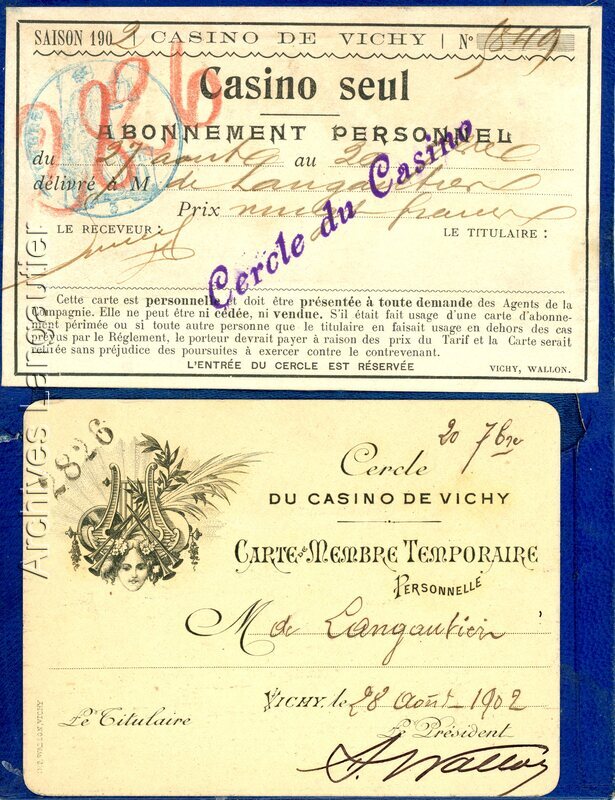 SAISON 1902 | CASINO DE VICHY | N° 1849
Casino seul
ABONNEMENT PERSONNEL
du 27 août au 20 7bre
délivré à M de Langautier
Prix francs
LE RECEVEUR : LE TITULAIRE :
1826
Cercle du Casino
Cette carte est personnelle et doit être présentée à toute demande des Agents de la
Compagnie. Elle ne peut être ni cédée, ni vendue. S'il était fait usage d'une carte d'abonne-
ment périmée ou si toute autre personne que le titulaire en faisait usage en dehors des cas
prévus par le Réglement, le porteur devrait payer à raison des prix du Tarif et la Carte serait
retirée sans préjudice des poursuites à exercer contre le contrevenant.
L'ENTRÉE DU CERCLE EST RÉSERVÉE
VICHY, WALLON.
Archives Langeutier
1826
20 7bre
Cercle
DU CASINO DE VICHY
CARTE DE MEMBRE TEMPORAIRE
PERSONNELLE
M de Langautier
VICHY, le 28 Août 1902
Le Titulaire Le Président
IMP. WALLON VICHY